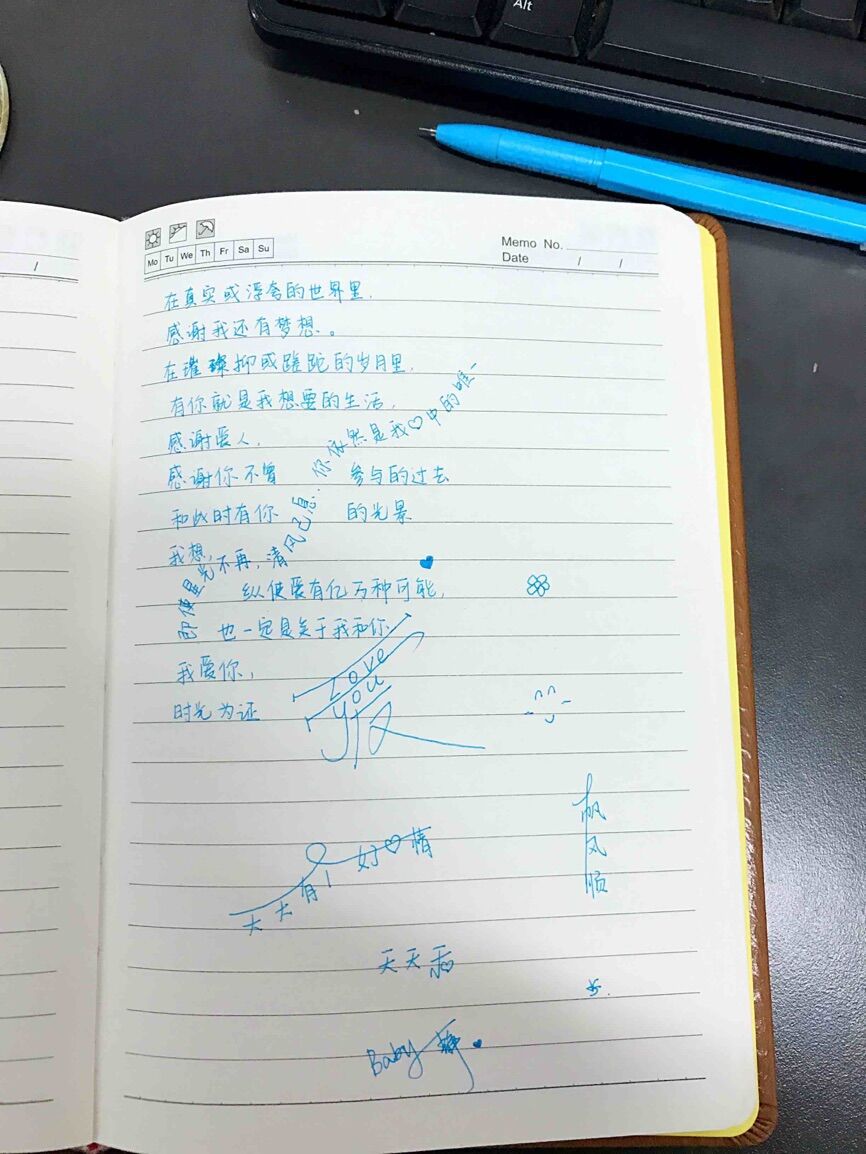 Alt
Mo Tu We Th Fr Sa Su
Memo No.
Date / /
/
在真实或浮夸的世界里,
感谢我还有梦想。
在璀璨抑或蹉跎的岁月里,
有你就是我想要的生活,
感谢爱人,
感谢你不曾参与的过去
和此时有你的光景
我想,
即使星光不再,清风已息:你依然是我♡中的唯一
纵使爱有亿万种可能,
也一定是关于我和你
我爱你,
时光为证
Love
You
天天有1好♡情
帆
风
顺
天天
Baby